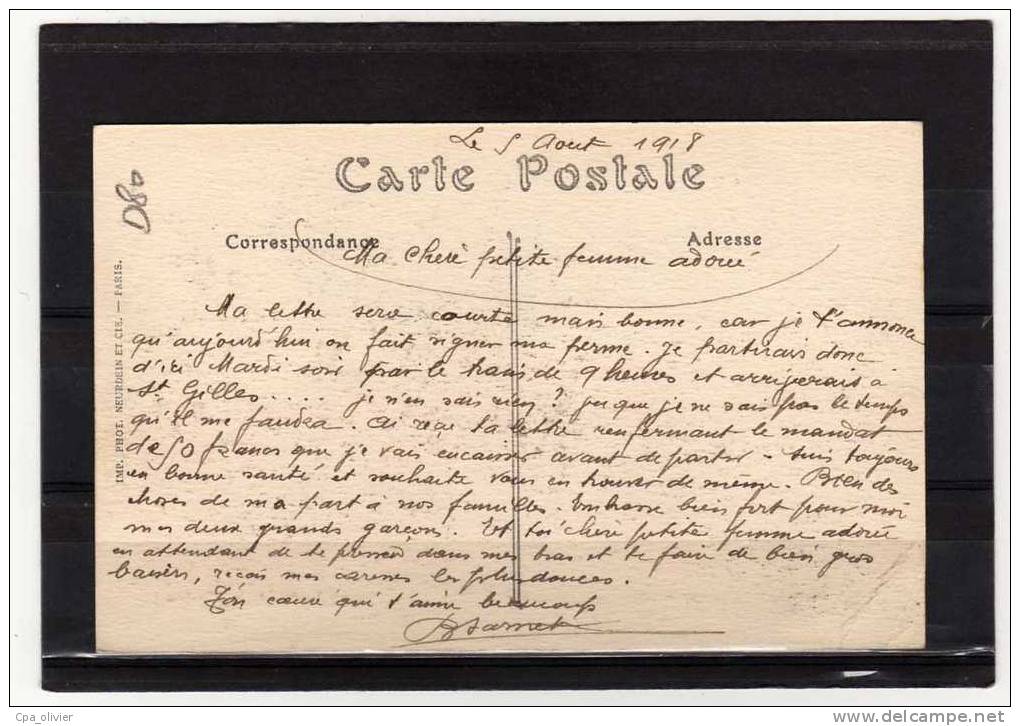 Le 5 Aout 1918
Carte Postale
D80
Correspondance
Adresse
Ma chère petite femme adorée
IMP. PHOT. NEURDEIN ET CIE. — PARIS.
Ma lettre sera courte mais bonne, car je t'annonce
qu'aujourd'hui on fait signer ma perme. Je partirais donc
d'ici Mardi soir par le train de 9 heures et arriverais à
St Gilles.... je n'en sais rien? que je ne sais pas le temps
qu'il me faudra. Ai reçu ta lettre renfermant le mandat
de 50 francs que je vais encaisser avant de partir - Suis toujours
en bonne santé et souhaite vous en trouver de même. Bien des
choses de ma part à nos familles. Embrasse bien fort pour moi
mes deux grands garçons. Et toi chère petite femme adorée
en attendant de te presser dans mes bras et te faire de bien gros
baisers, reçois mes caresses les plus douces.
Ton cœur qui t'aime beaucoup
Cpa_olivier
www.delcampe.net